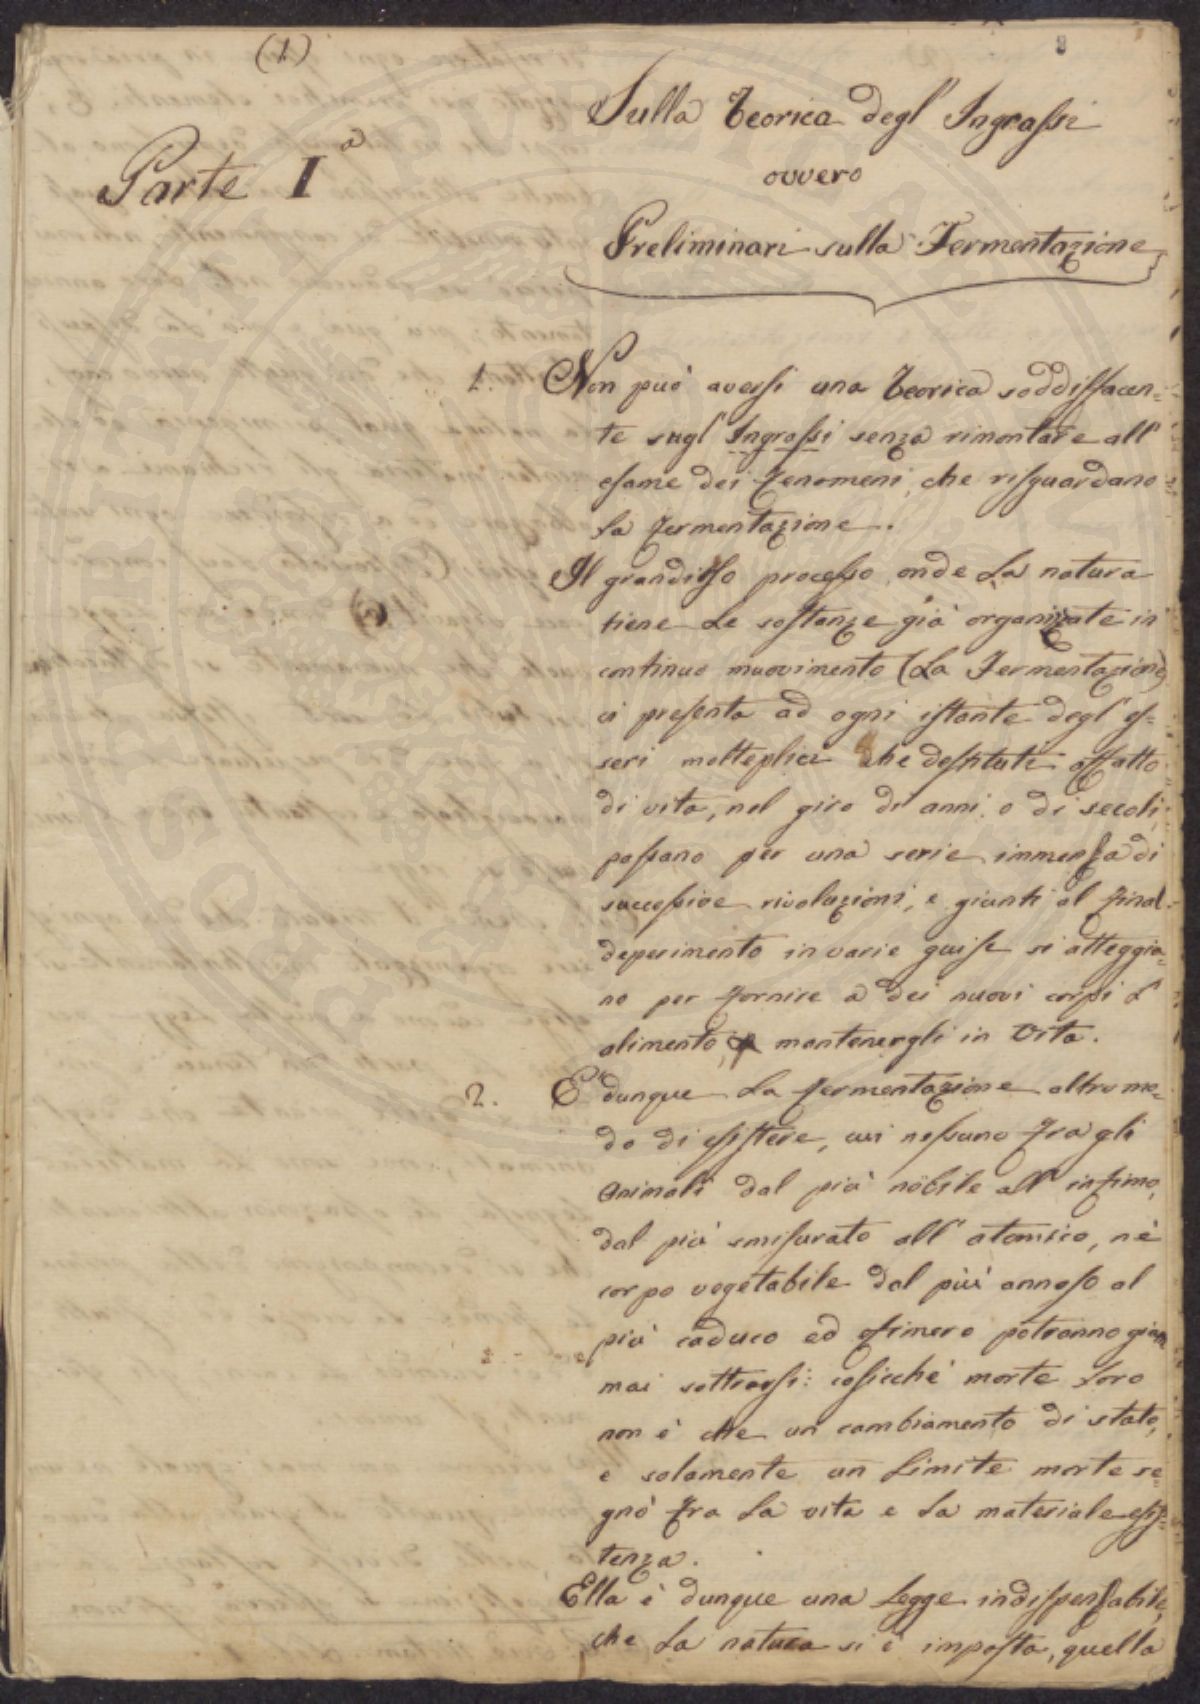 (1)
Parte Iª
Sulla Teorica degl' Ingrassi
ovvero
Preliminari sulla Fermentazione
1. Non può aversi una Teorica soddisfacen=
te sugl' Ingrassi senza rimontare all'
esame dei Fenomeni, che risguardano
la Fermentazione.
Il grandioso processo, onde la natura
tiene le sostanze già organizzate in
continuo muovimento (la Fermentazione)
ci presenta ad ogni istante degl' es=
seri molteplici che destituti affatto
di vita, nel giro di anni o di secoli,
passano per una serie immensa di
successive rivoluzioni, e giunti al final
deperimento in varie guise si atteggia=
no per fornire a dei nuovi corpi l'
alimento, e mantenergli in vita.
2. E' dunque la fermentazione altro mo=
do di esistere, cui nessuno fra gli
animali dal più nobile all' infimo,
dal più smisurato all' atomico, nè
corpo vegetabile dal più annoso al
più caduco ed efimero potranno giam
mai sottrarsi: cosicchè morte loro
non è che un cambiamento di stato,
e solamente un limite morte se=
gnò fra la vita e la materiale esis=
tenza.
Ella è dunque una legge indispensabile,
che la natura si è imposta, quella